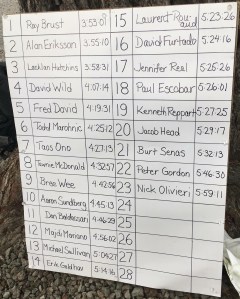 1 Ray Brust 3:53:07
2 Alan Eriksson 3:55:10
3 Lachlan Hutchins 3:58:31
4 David Wild 4:07:14
5 Fred David 4:19:31
6 Todd Marohnic 4:25:12
7 Taos Ono 4:27:13
8 McDonald 4:32:57
9 Brea Wee 4:42:56
10 Aaron Sundberg 4:45:13
11 Dan Baldassari 4:46:29
12 Majdi Mariano 4:56:02
13 Michael Sullivan 5:04:27
14 Erik Goldhav 5:14:16
15 Laurent 5:23:26
16 David Furtado 5:24:16
17 Jennifer Real 5:25:26
18 Paul Escobar 5:26:01
19 Kenneth Reppart 5:27:25
20 Jacob Head 5:29:17
21 Burt Senas 5:32:13
22 Peter Gordon 5:46:30
23 Nick Olivieri 5:59:11
24
25
26
27
28